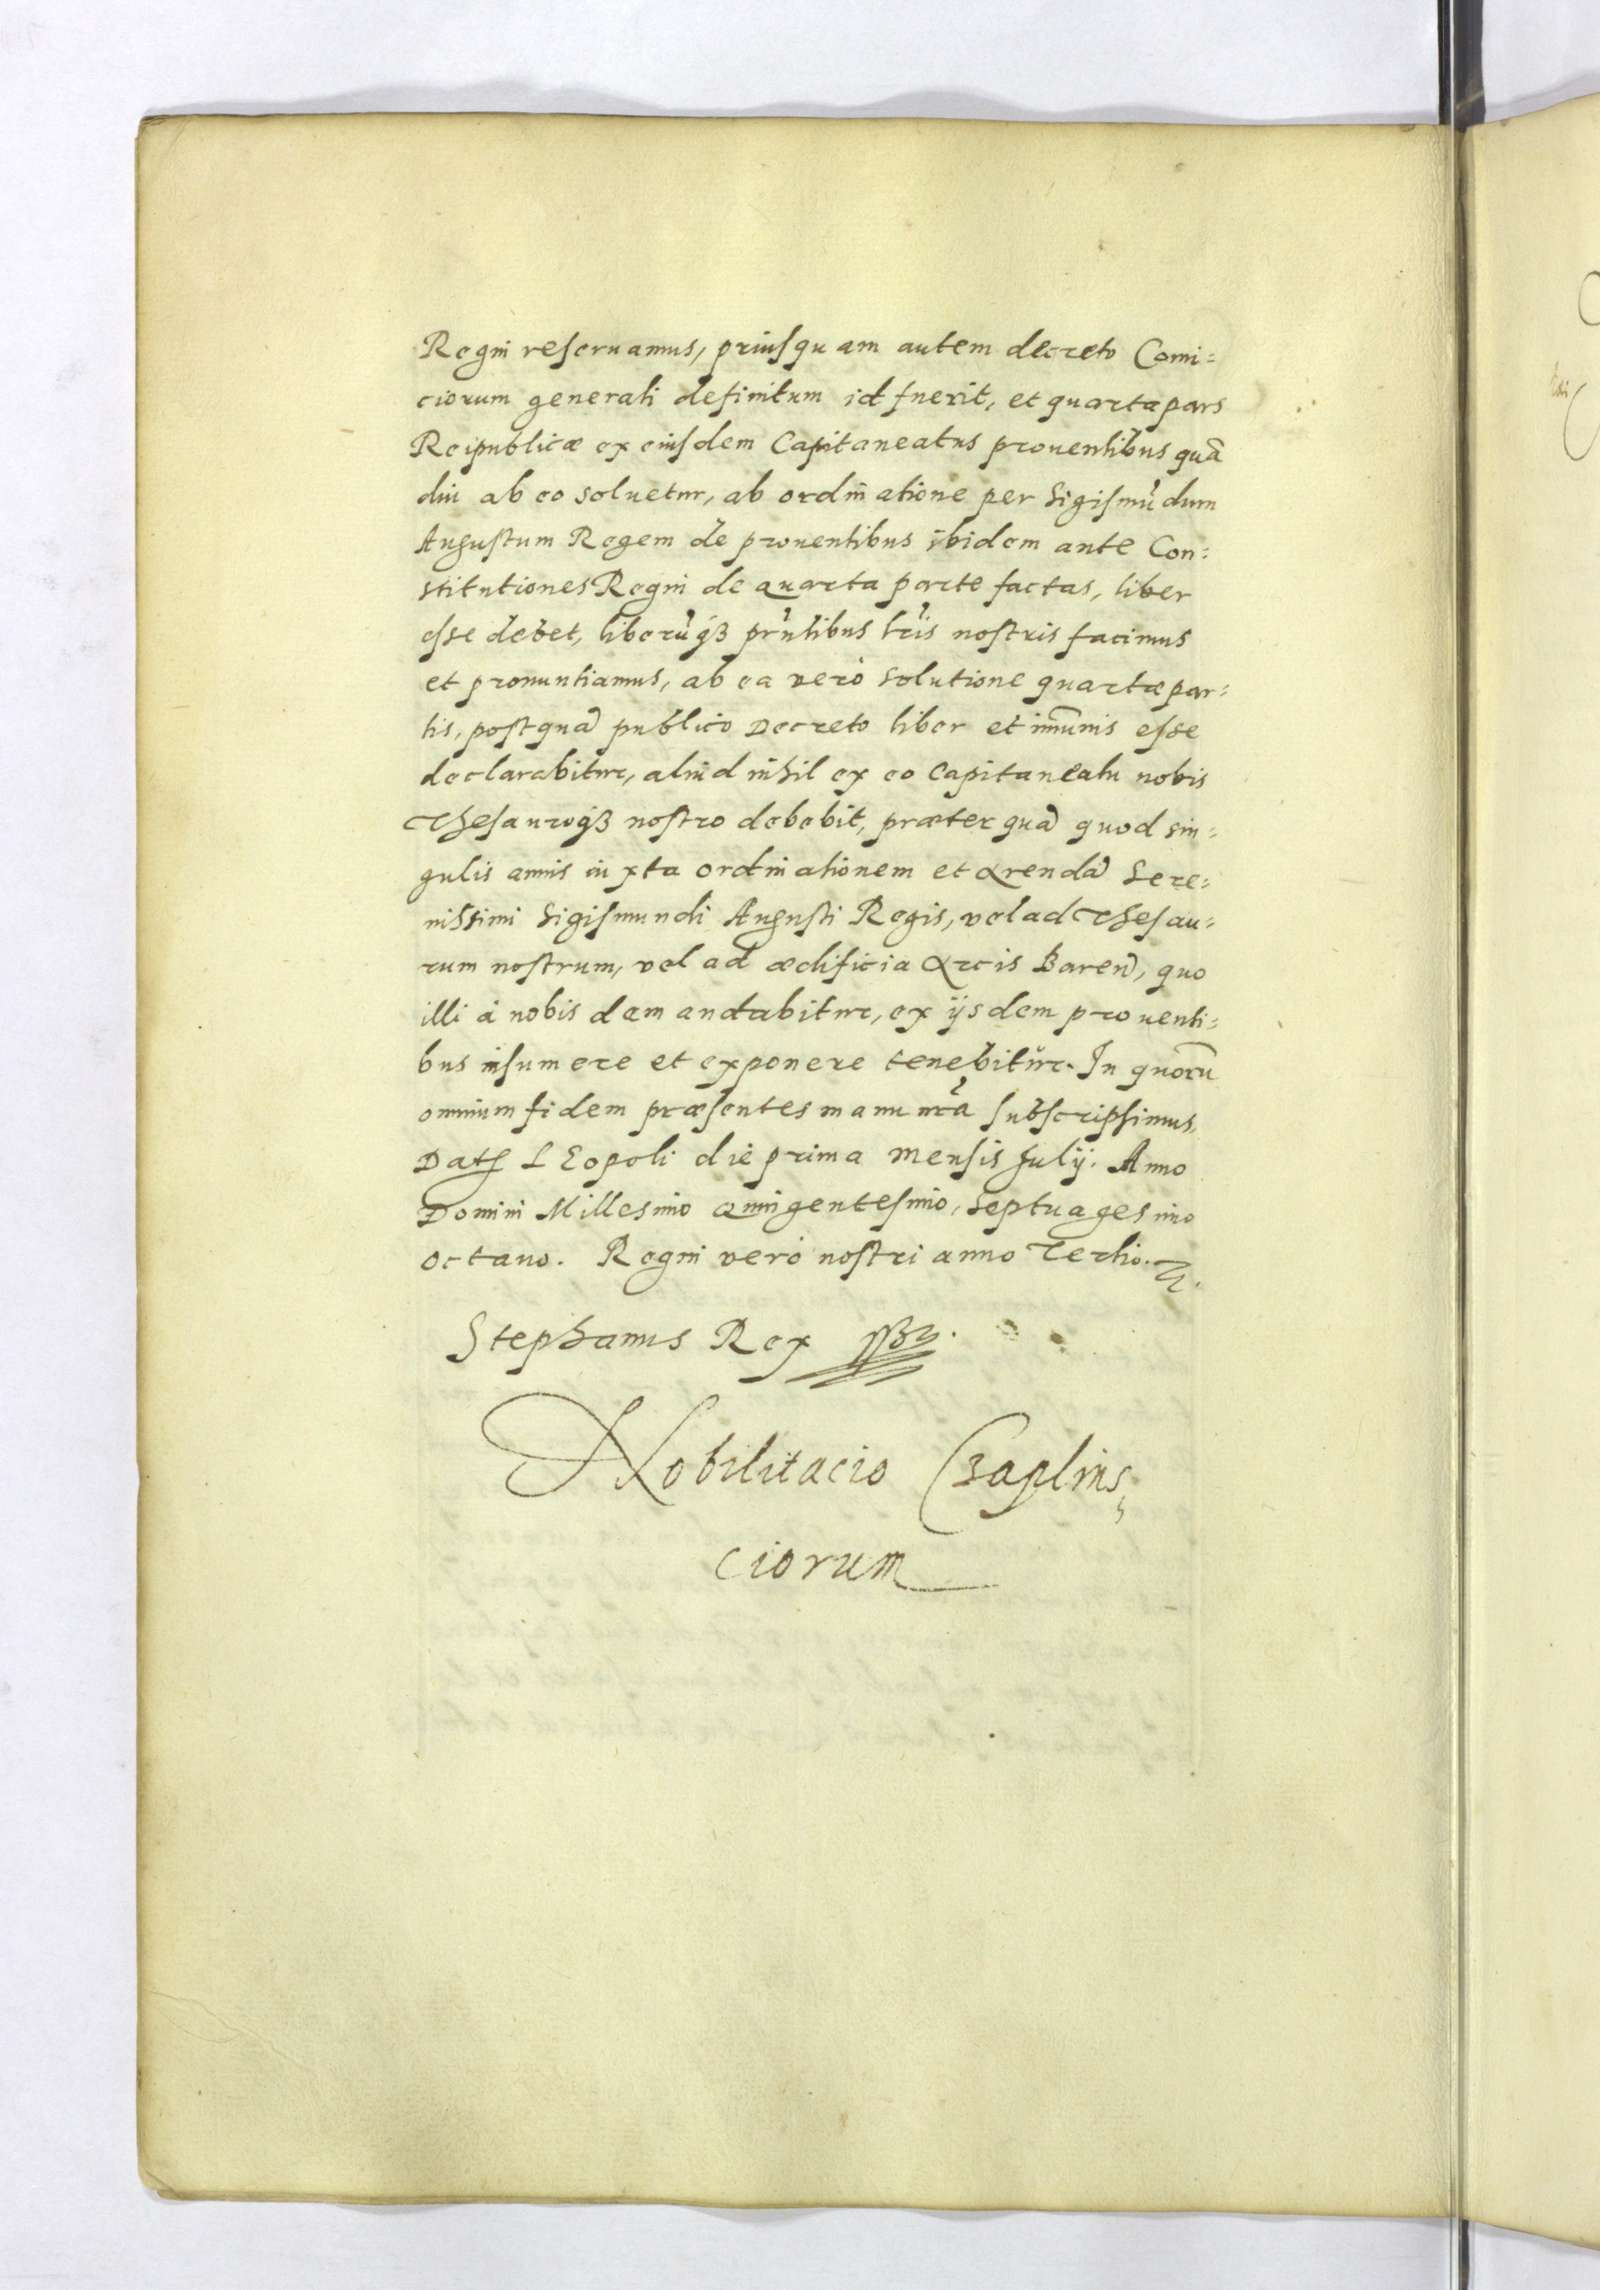 Regni reseruamus, priusquam autem decreto Comi=
ciorum generali definitum id fuerit, et quarta pars
Reipublicæ ex eiusdem Capitaneatus prouentibus quā
diu ab eo soluetur, ab ordinatione per Sigismūdum
Augustum Regem de prouentibus ibidem ante Con=
stitutiones Regni de quarta parte factas, liber
esse debet, liberūqꝫ prn̄tibus lr̄is nostris facimus
et pronuntiamus, ab ea verò solutione quartæ par=
tis, postquā publico Decreto liber et im̄unis esse
declarabitur, aliud nihil ex eo Capitaneatu nobis
Thesauroqꝫ nostro debebit, præterquā quod sin=
gulis annis iuxta ordinationem et Arendā Sere=
nissimi Sigismundi Augusti Regis, vel ad Thesau=
rum nostrum, vel ad ædificia Arcis Baren̄, quo
illi à nobis demandabitur, ex ijsdem prouenti=
bus insumere et exponere tenebitur. In quorū
omnium fidem præsentes manu nr̄a subscripsimus.
Dat Leopoli die prima mensis Julij. Anno
Domini Millesimo Quingentesimo, Septuagesimo
octauo. Regni verò nostri anno Tertio.
Stephanus Rex
Nobilitacio Czaplins,
ciorum